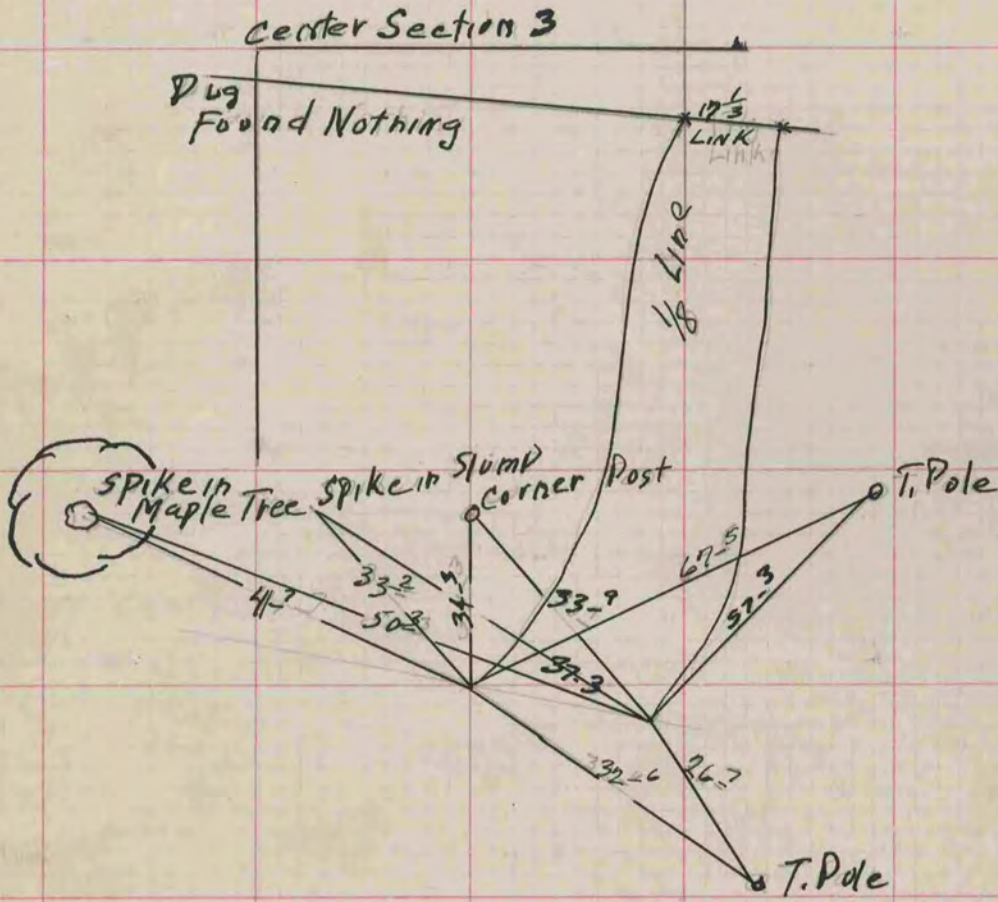 Center Section 3
Dug
Found Nothing
17 1/3
LINK
Link
1/8 Line
Spike in
Maple Tree
Spike in Stump
Corner Post
T. Pole
67-5
33-2
34-3
33-9
57-3
41-7
50-3
37-3
32-6
26-7
T. Pole